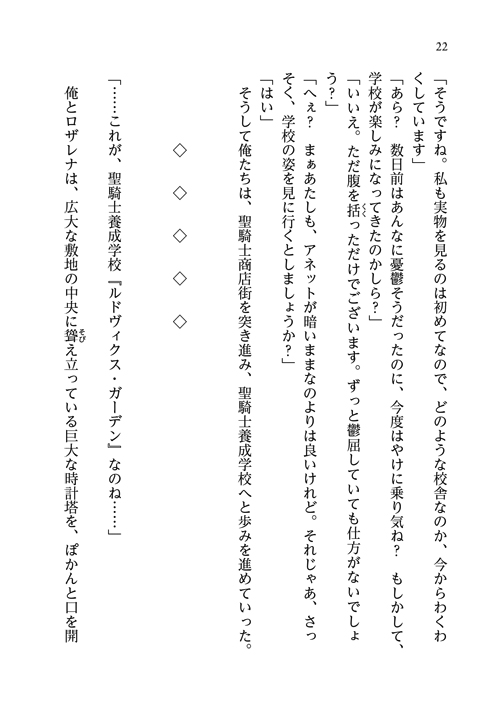 22
「そうですね。私も実物を見るのは初めてなので、どのような校舎なのか、今からわくわ
くしています」
「あら？　数日前はあんなに憂鬱そうだったのに、今度はやけに乗り気ね？　もしかして、
学校が楽しみになってきたのかしら？」
「いいえ。ただ腹を括っただけでございます。ずっと鬱屈していても仕方がないでしょ
う？」
「へぇ？　まぁあたしも、アネットが暗いままなのよりは良いけれど。それじゃあ、さっ
そく、学校の姿を見に行くとしましょうか？」
「はい」
　そうして俺たちは、聖騎士商店街を突き進み、聖騎士養成学校へと歩みを進めていった。
◇　◇　◇　◇　◇
「……これが、聖騎士養成学校『ルドヴィクス・ガーデン』なのね……」
　俺とロザレナは、広大な敷地の中央に聳え立っている巨大な時計塔を、ぽかんと口を開